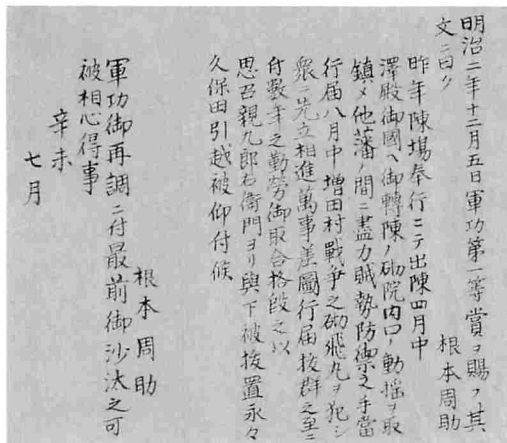 明治二年十二月五日軍功第一等賞ヲ賜フ其
文ニ曰ク
根本周助
昨年陳場奉行ニテ出陳四月中
澤殿御國ヘ御轉陳ノ砌院内口ノ動揺ヲ取
鎮メ他藩ノ間ニ盡力賊勢防禦之手當
行届八月中増田村戰争之砌飛丸ヲ犯シ
衆ニ先立相進萬事差圖行届抜群之至ニ
付數年之勤勞御取合格段之以
思召親九郎右衛門ヨリ與下被扱置永々
久保田引越被仰付候
根本周助
軍功御再調ニ付最前御沙汰之可
被相心得事
辛未
七月